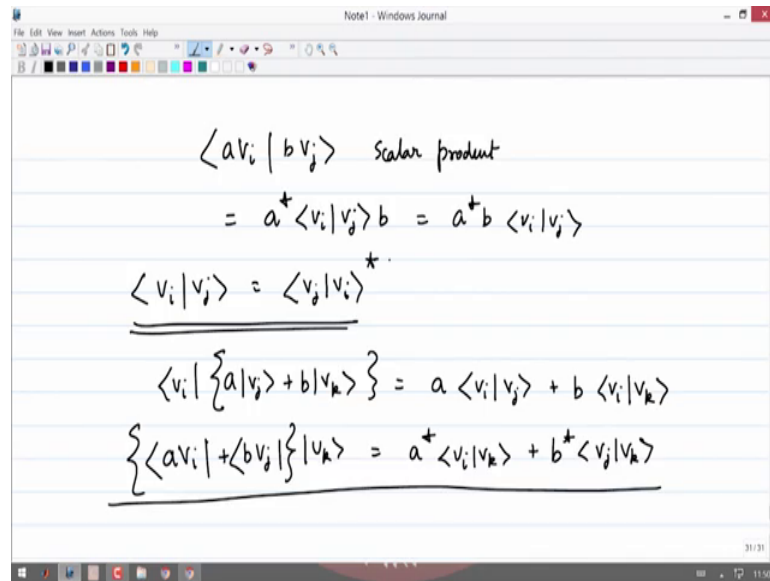 Note1 - Windows Journal
File Edit View Insert Actions Tools Help
B I
⟨avᵢ | bvⱼ⟩ scalar product
= a* ⟨vᵢ|vⱼ⟩ b = a* b ⟨vᵢ|vⱼ⟩
⟨vᵢ|vⱼ⟩ = ⟨vⱼ|vᵢ⟩*
⟨vᵢ| {a|vⱼ⟩ + b|vₖ⟩} = a ⟨vᵢ|vⱼ⟩ + b ⟨vᵢ|vₖ⟩
{⟨avᵢ| + ⟨bvⱼ|} |vₖ⟩ = a* ⟨vᵢ|vₖ⟩ + b* ⟨vⱼ|vₖ⟩
31/31
11:50